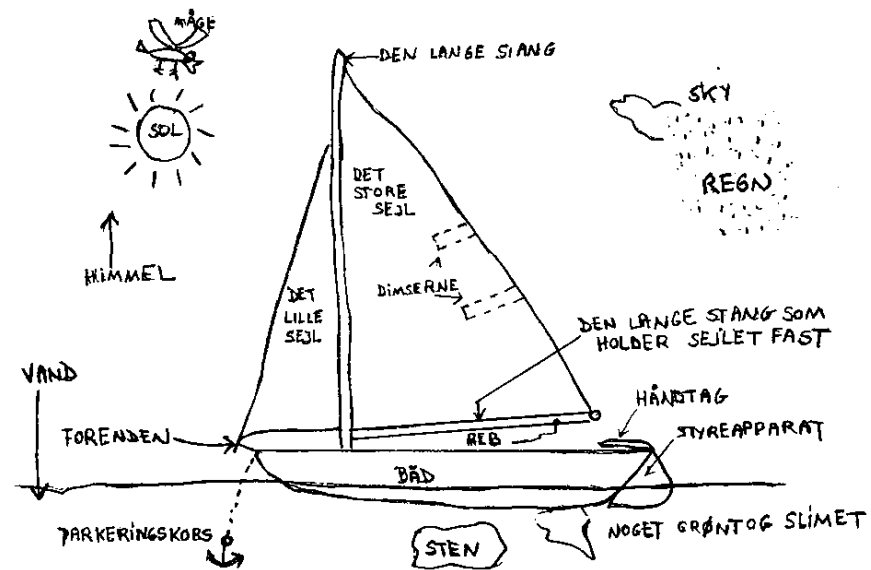 MÅGE
DEN LANGE STANG
SKY
SOL
REGN
DET
STORE
SEJL
HIMMEL
DIMSERNE
DET
LILLE
SEJL
DEN LANGE STANG SOM
HOLDER SEJLET FAST
VAND
HÅNDTAG
FORENDEN
REB
STYREAPPARAT
BÅD
PARKERINGSKOBS
STEN
NOGET GRØNT OG SLIMET